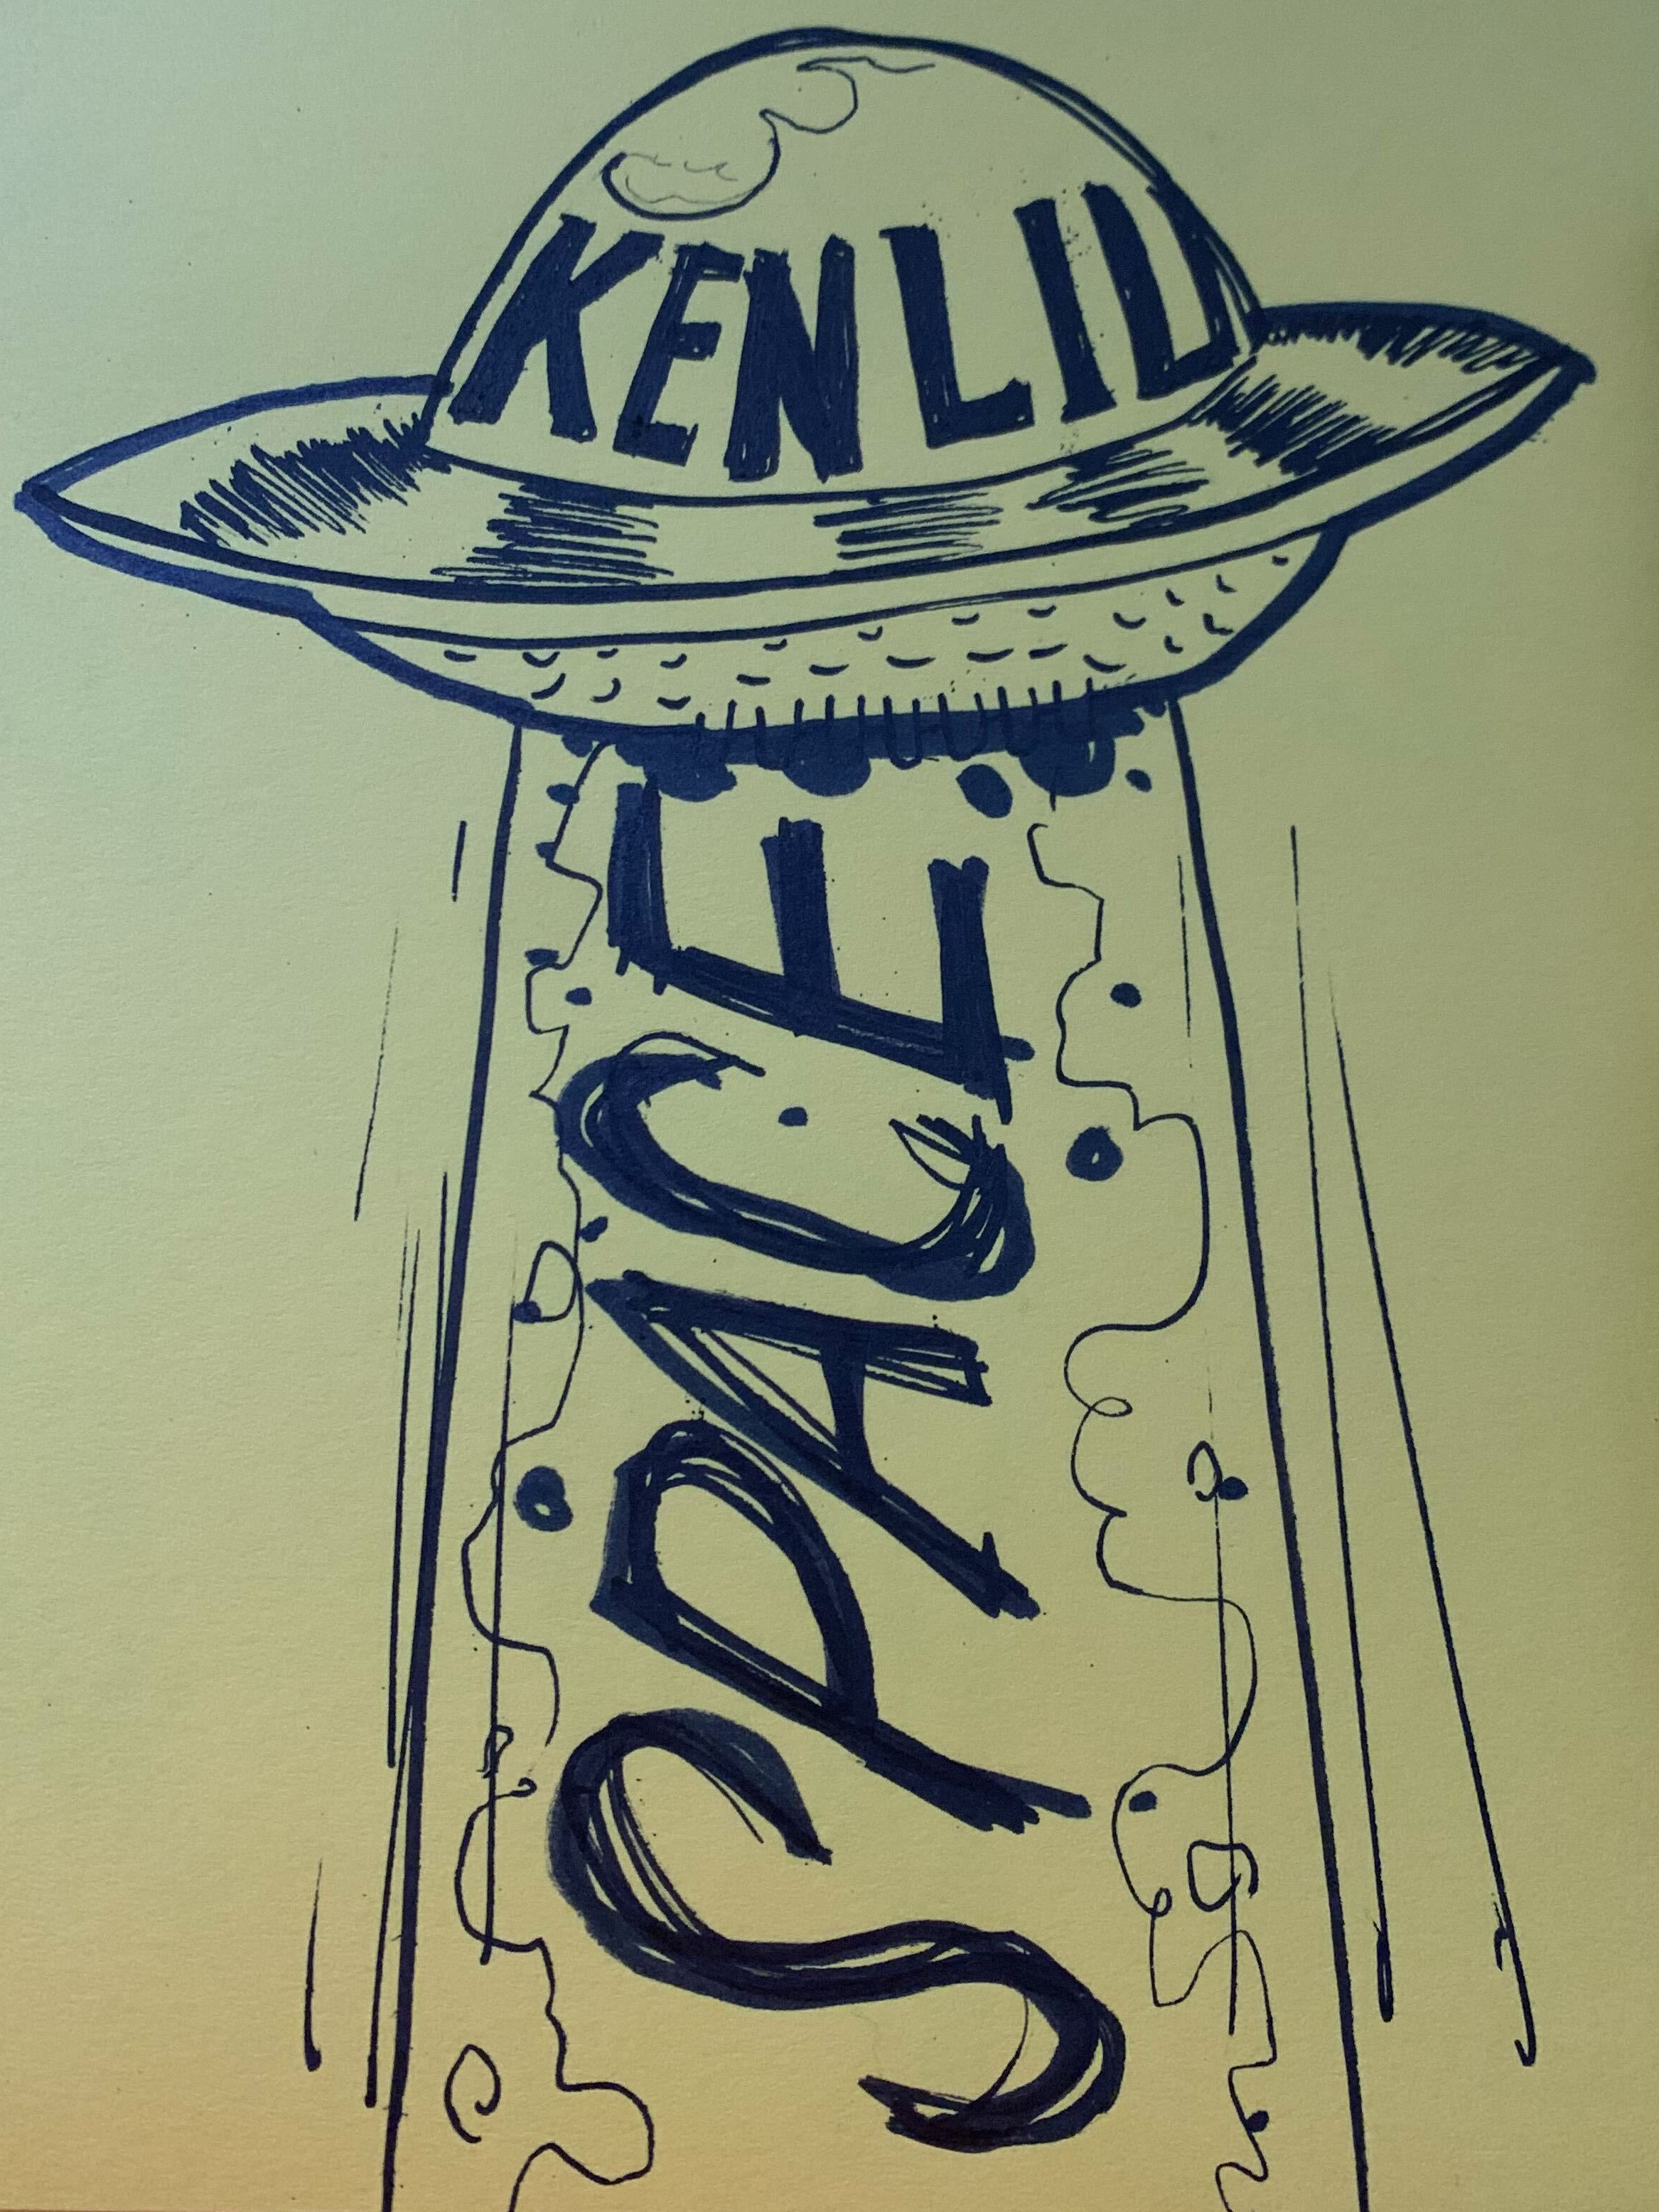 KEN LIU
SPACE